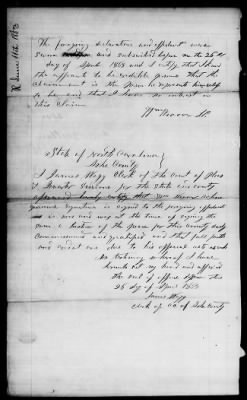 The foregoing declaration and affidavit was
sworn and subscribed before me on the 26th
day of April 1853 and I certify that I know
the affiant to be credible person that the
claimant is the person he represents himself
to be and that I have no interest in
this Claim
Wm
State of North Carolina
Ashe County
I James Wagg Clerk of the Court of Pleas
& Quarter Sessions for the State and County
aforesaid hereby certify that Wm
genuine signature is signed to the foregoing affidavit
is and was at the time of signing the
same a Justice of the peace for the County duly
Commissioned and qualified and that full faith
and credit are due to his official acts as such
In testimony whereof I have
hereunto set my hand and affixed
the seal of office
26 day of April 1853
James Wagg
Clerk of CC of Ashe County